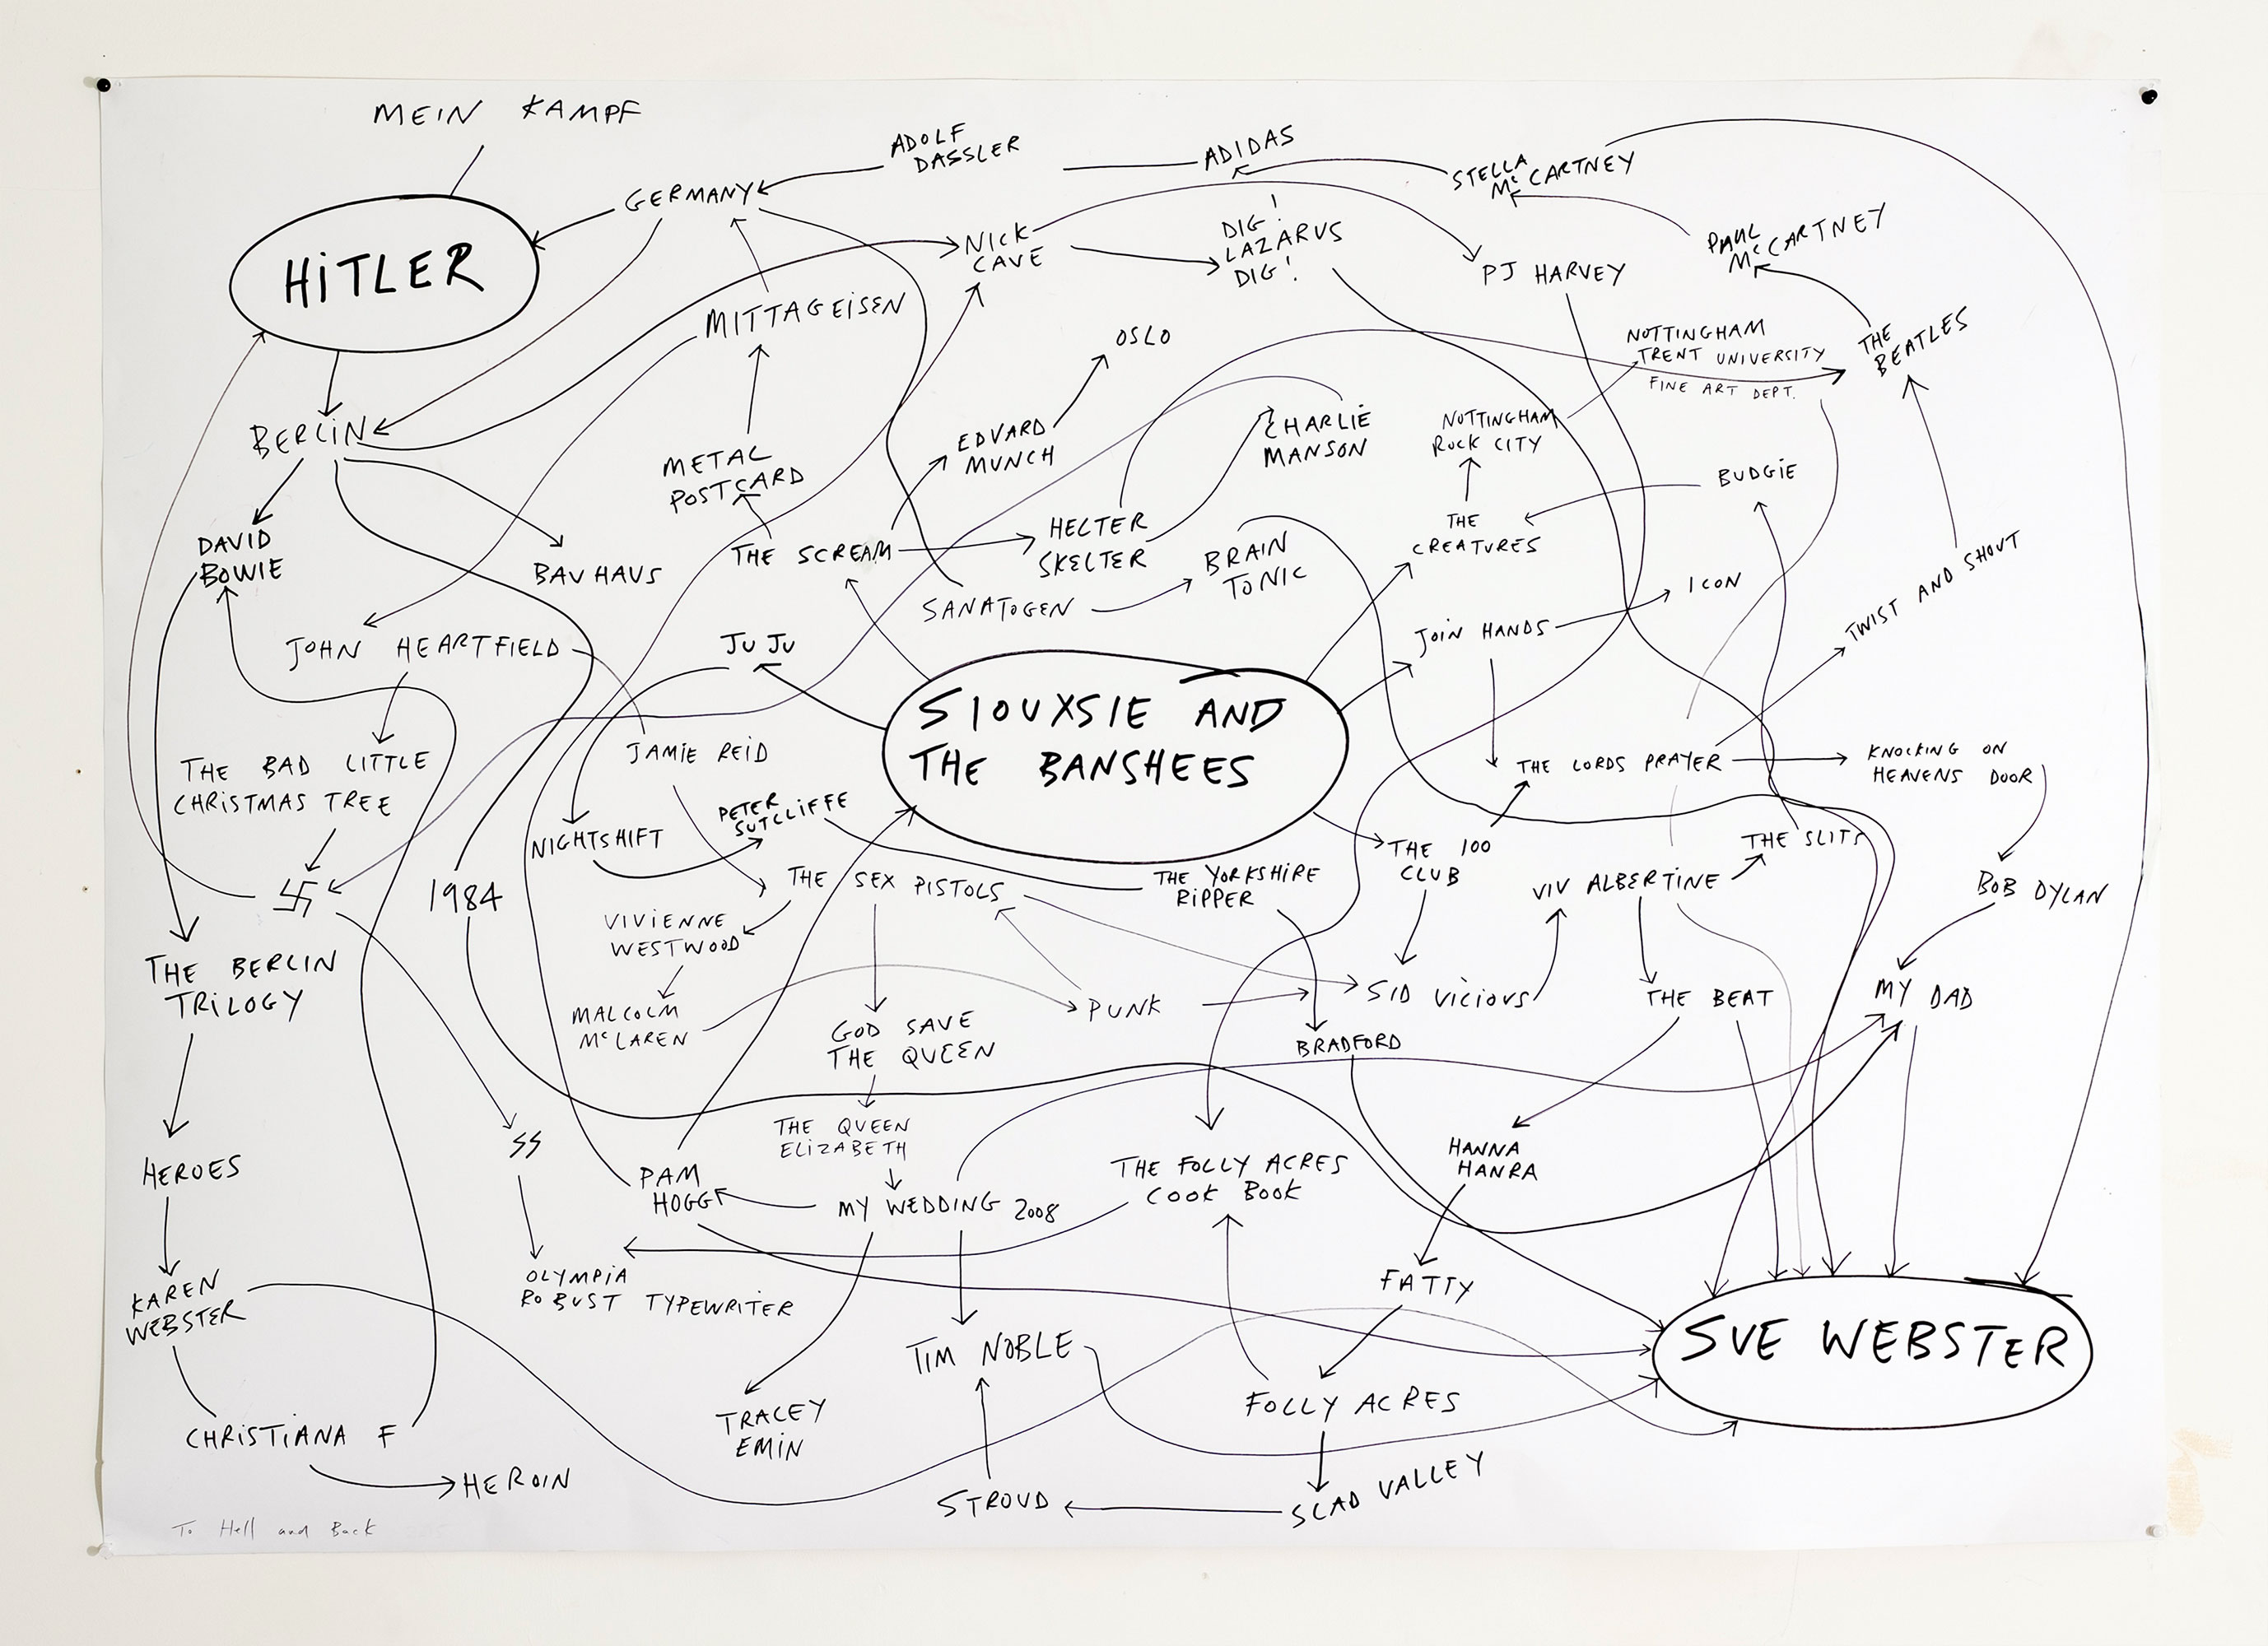 MEIN KAMPF
ADOLF
DASSLER
ADIDAS
STELLA
McCARTNEY
GERMANY
HITLER
NICK
CAVE
DIG!
LAZARUS
DIG!
PAUL
McCARTNEY
PJ HARVEY
MITTAGEISEN
OSLO
NOTTINGHAM
TRENT UNIVERSITY
FINE ART DEPT.
THE
BEATLES
BERLIN
METAL
POSTCARD
EDVARD
MUNCH
CHARLIE
MANSON
NOTTINGHAM
ROCK CITY
BUDGIE
DAVID
BOWIE
BAUHAUS
THE SCREAM
HELTER
SKELTER
BRAIN
TONIC
THE
CREATURES
SANATOGEN
ICON
TWIST AND SHOUT
JOHN HEARTFIELD
JU JU
JOIN HANDS
SIOUXSIE AND
THE BANSHEES
JAMIE REID
THE BAD LITTLE
CHRISTMAS TREE
THE LORDS PRAYER
KNOCKING ON
HEAVENS DOOR
NIGHTSHIFT
PETER
SUTCLIFFE
THE 100
CLUB
THE SLITS
卐
1984
THE SEX PISTOLS
THE YORKSHIRE
RIPPER
VIV ALBERTINE
BOB DYLAN
VIVIENNE
WESTWOOD
THE BERLIN
TRILOGY
MALCOLM
McLAREN
GOD SAVE
THE QUEEN
PUNK
SID VICIOUS
THE BEAT
MY DAD
BRADFORD
SS
THE QUEEN
ELIZABETH
HEROES
PAM
HOGG
MY WEDDING 2008
THE FOLLY ACRES
COOK BOOK
HANNA
HANRA
OLYMPIA
ROBUST TYPEWRITER
KAREN
WEBSTER
FATTY
TIM NOBLE
SUE WEBSTER
TRACEY
EMIN
FOLLY ACRES
CHRISTIANA F
HEROIN
STROUD
SLAD VALLEY
To Hell and Back